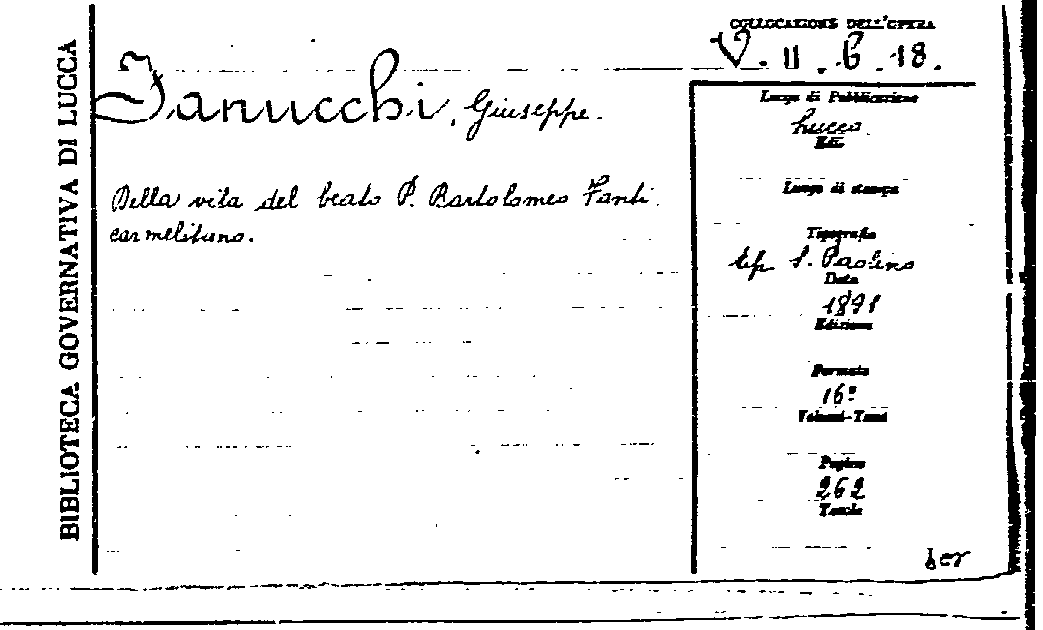 BIBLIOTECA GOVERNATIVA DI LUCCA
COLLOCAZIONE DELL'OPERA
V. II. 6. 18.
Ianucchi, Giuseppe.
Della vita del beato P. Bartolomeo Fanti
carmelitano.
Luogo di Pubblicazione
Lucca
Edit.
Luogo di stampa
Tipografia
tip. S. Paolino
Data
1891
Edizione
Formato
16º
Volumi-Tomi
Pagine
262
Tavole
ber